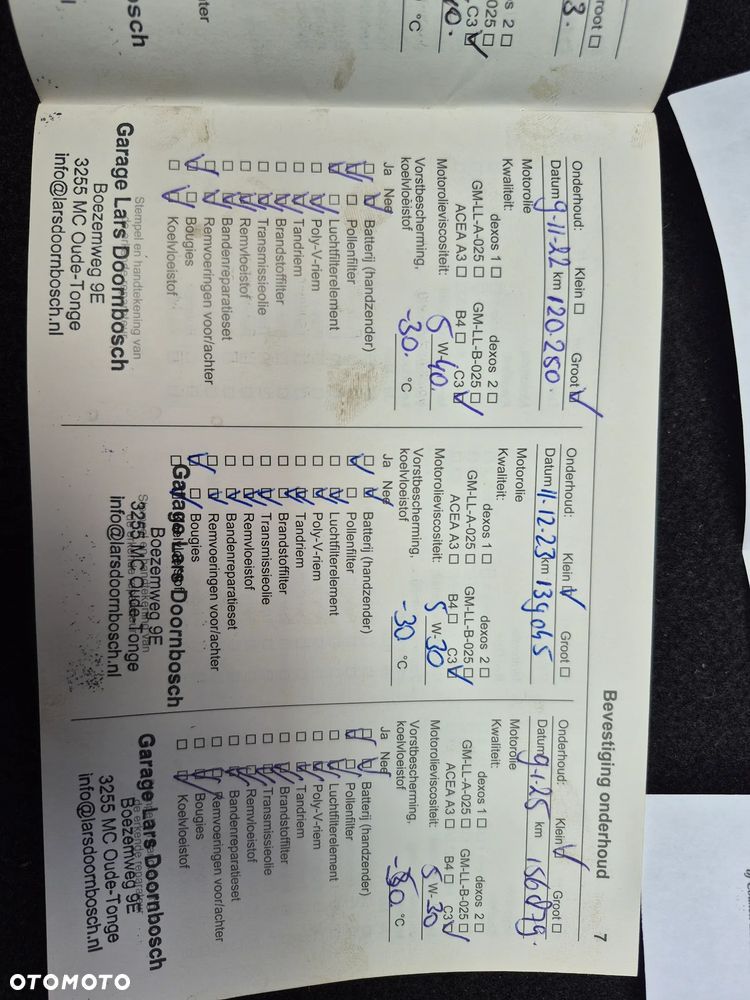 Bevestiging onderhoud
7
Onderhoud: Klein Groot
Datum 9-11-22 km 120.250.
Motorolie
Kwaliteit: dexos 1 dexos 2
GM-LL-A-025 GM-LL-B-025
ACEA A3 B4 C3
Motorolieviscositeit: 5 W-40.
Vorstbescherming,
koelvloeistof -30. °C
Ja Nee
Batterij (handzender)
Pollenfilter
Luchtfilterelement
Poly-V-riem
Tandriem
Brandstoffilter
Transmissieolie
Remvloeistof
Bandenreparatieset
Remvoeringen voor/achter
Bougies
Koelvloeistof
Stempel en handtekening van
Garage Lars Doornbosch
Boezemweg 9E
3255 MC Oude-Tonge
info@larsdoornbosch.nl
Onderhoud: Klein Groot
Datum 11-12-23 km
Motorolie
Kwaliteit: dexos 1 dexos 2
GM-LL-A-025 GM-LL-B-025
ACEA A3 B4 C3
Motorolieviscositeit: 5 W-30
Vorstbescherming,
koelvloeistof -30 °C
Ja Nee
Batterij (handzender)
Pollenfilter
Luchtfilterelement
Poly-V-riem
Tandriem
Brandstoffilter
Transmissieolie
Remvloeistof
Bandenreparatieset
Remvoeringen voor/achter
Bougies
Garage Lars Doornbosch
Boezemweg 9E
3255 MC Oude-Tonge
info@larsdoornbosch.nl
Onderhoud: Klein Groot
Datum 9-1-25 km 156879.
Motorolie
Kwaliteit: dexos 1 dexos 2
GM-LL-A-025 GM-LL-B-025
ACEA A3 B4 C3
Motorolieviscositeit: 5 W-30
Vorstbescherming,
koelvloeistof °C
Ja Nee
Batterij (handzender)
Pollenfilter
Luchtfilterelement
Poly-V-riem
Tandriem
Brandstoffilter
Transmissieolie
Remvloeistof
Bandenreparatieset
Remvoeringen voor/achter
Bougies
Koelvloeistof
Garage Lars Doornbosch
Boezemweg 9E
3255 MC Oude-Tonge
info@larsdoornbosch.nl
OTOMOTO